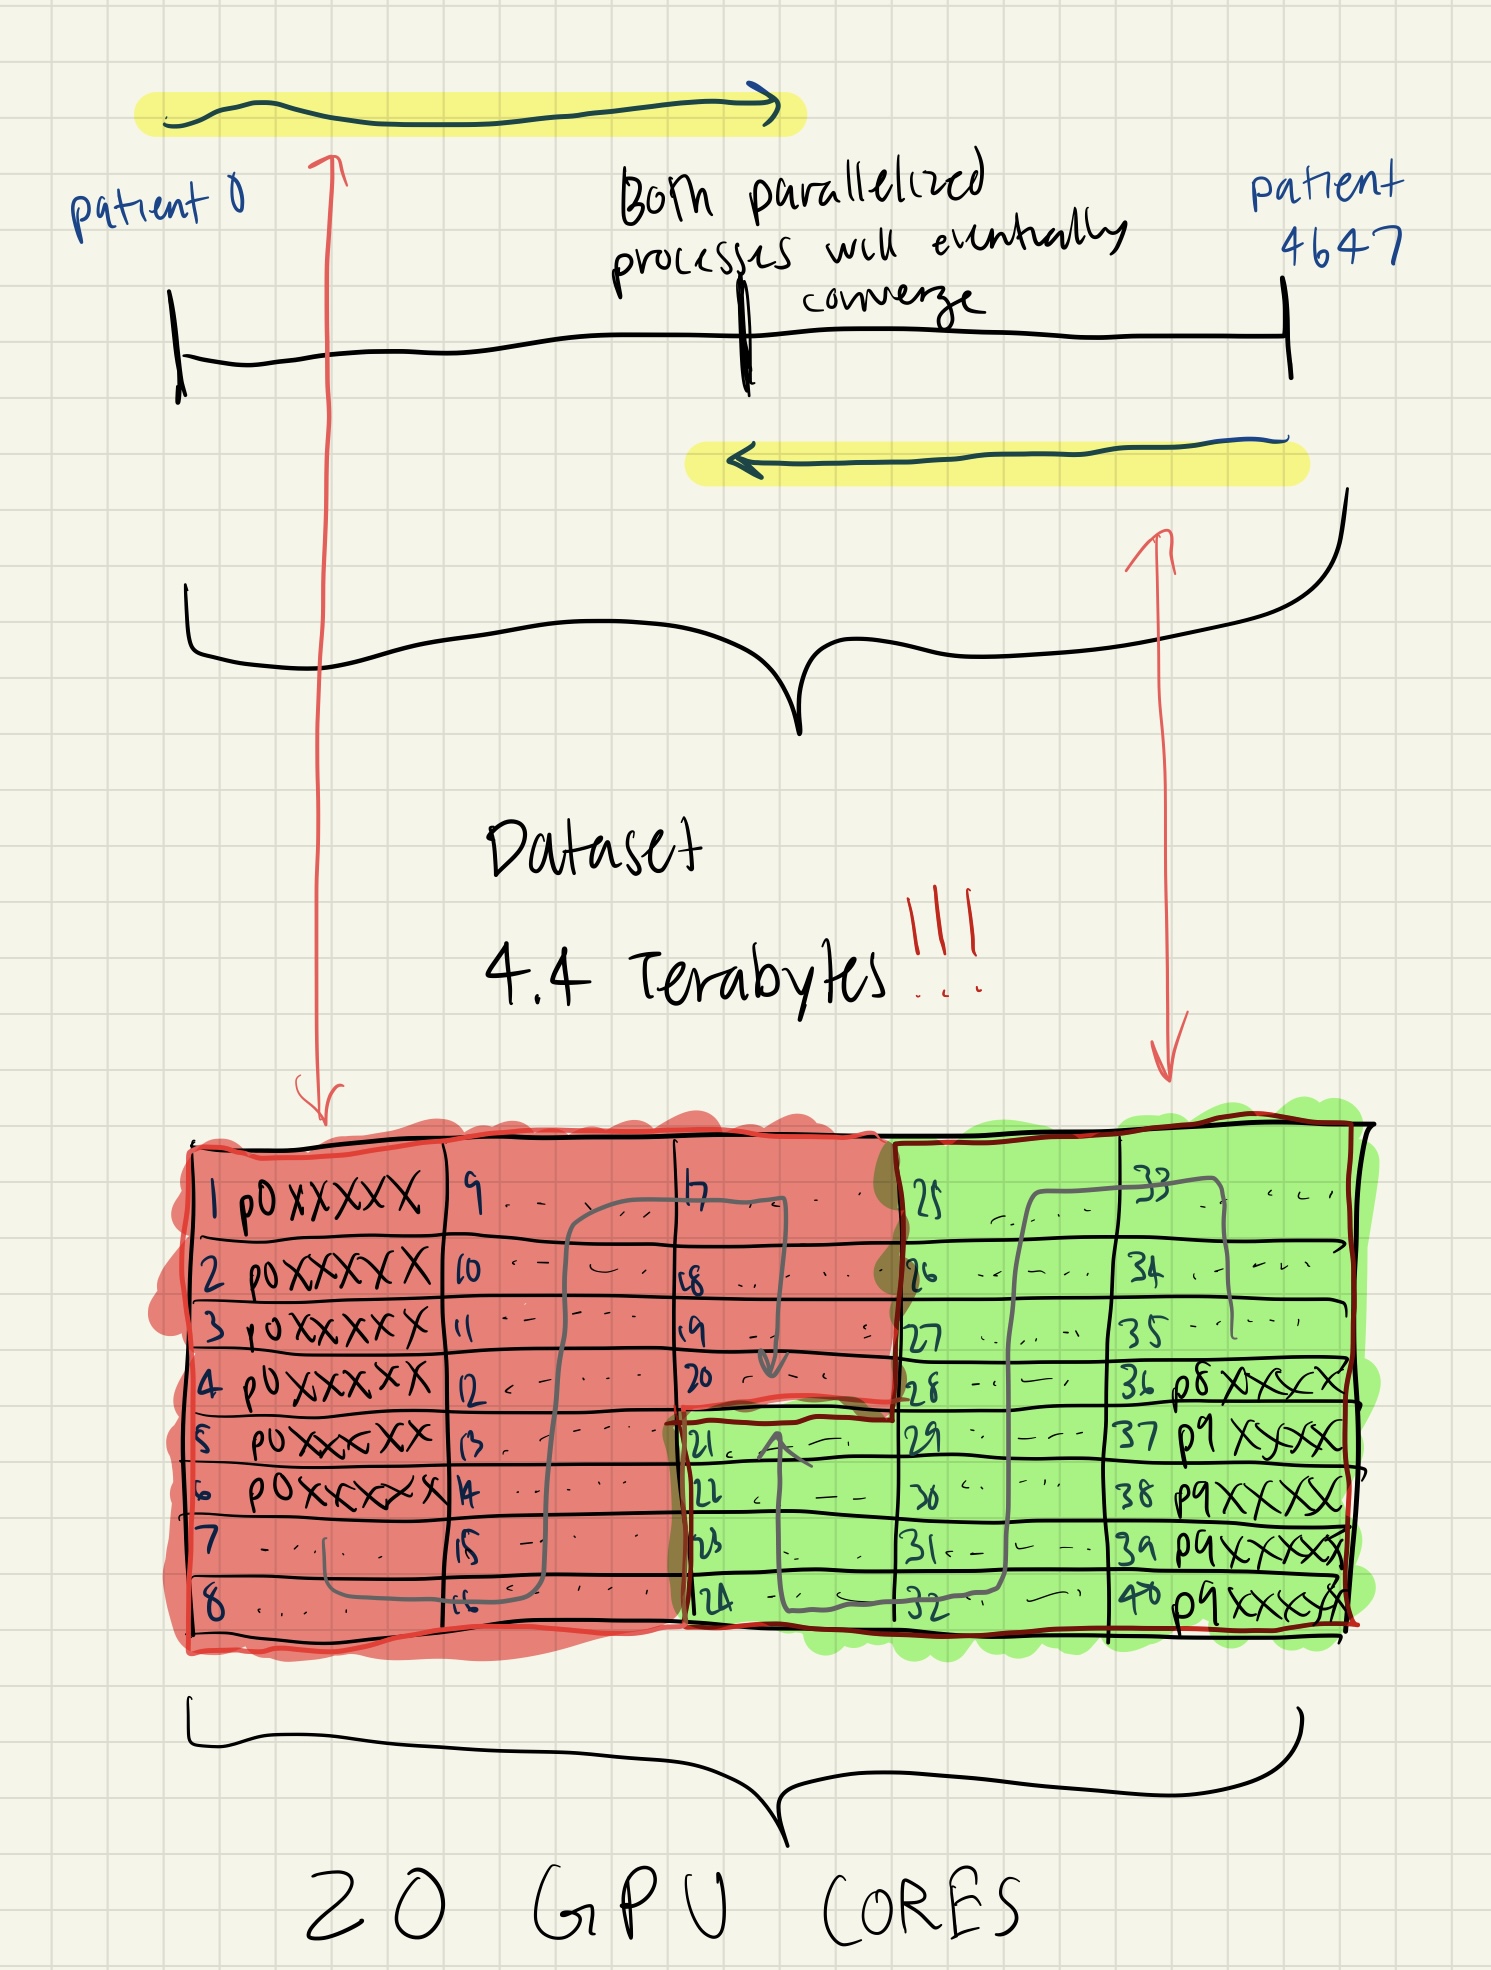 patient 0
Both parallelized
processes will eventually
converge
patient
4647
Dataset
4.4 Terabytes !!!
1 p0XXXXX 9 17 25 33
2 p0XXXXX 10 18 26 34
3 p0XXXXX 11 19 27 35
4 p0XXXXX 12 20 28 36 p8XXXX
5 p0XXXXX 13 21 29 37 p9XXXX
6 p0XXXXX 14 22 30 38 p9XXXX
7 15 23 31 39 p9XXXXX
8 16 24 32 40 p9XXXXX
20 GPU CORES